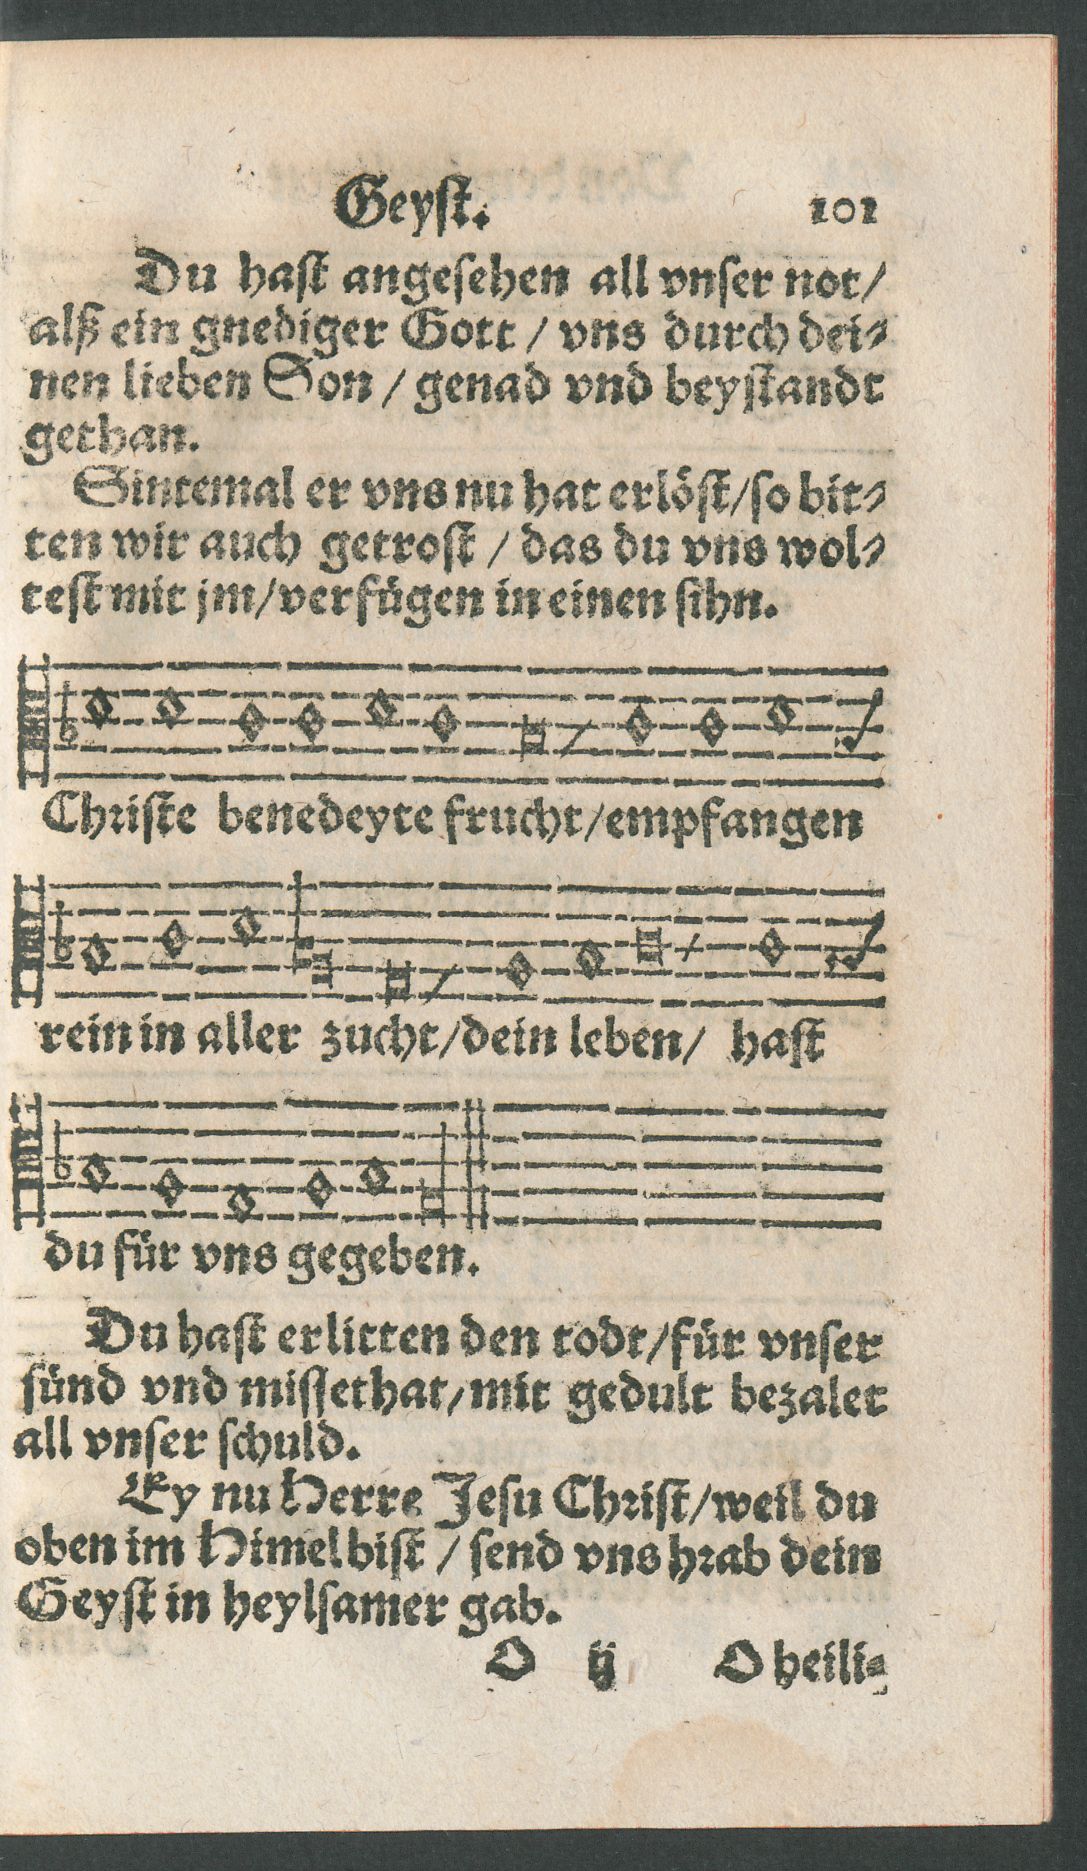 Geyſt. 101
Du haſt angeſehen all vnſer not/
alß ein gnediger Gott / vns durch dei⸗
nen lieben Son / genad vnd beyſtandt
gethan.
Sintemal er vns nu hat erlöſt/ſo bit⸗
ten wir auch getroſt / das du vns wol⸗
teſt mit jm/verfügen in einen ſihn.
Chriſte benedeyte frucht/empfangen
rein in aller zucht/dein leben/ haſt
du für vns gegeben.
Du haſt erlitten den todt/für vnſer
ſünd vnd miſſethat/mit gedult bezalet
all vnſer ſchuld.
Ey nu Herre Jeſu Chriſt/weil du
oben im Himel biſt / ſend vns hrab dein
Geyſt in heylſamer gab.
O ij O heili⸗